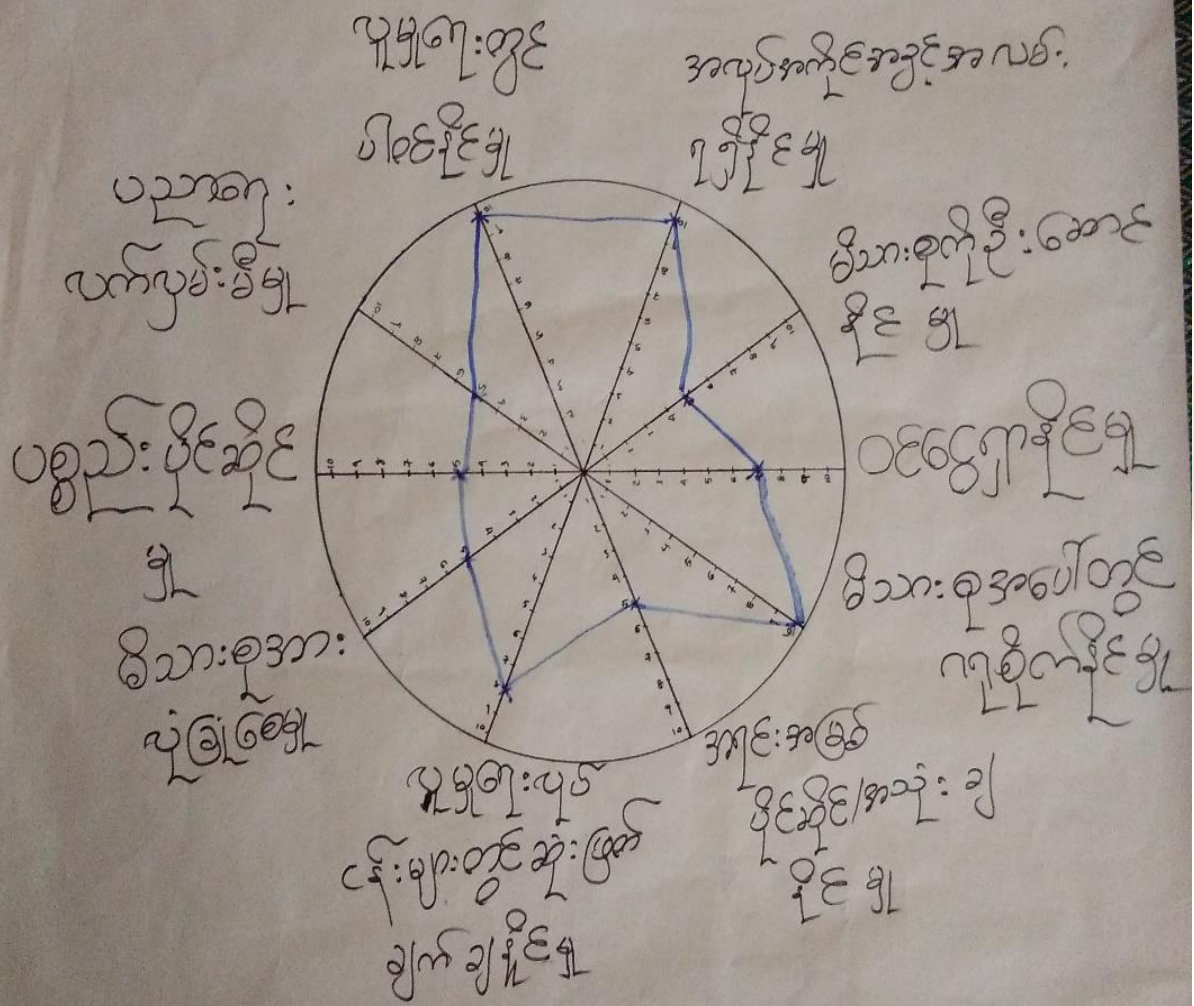 လူမှုရေးတွင်
ပါဝင်နိုင်မှု
အလုပ်အကိုင်အခွင့်အလမ်း
ရရှိနိုင်မှု
မိသားစုကိုဦးဆောင်
နိုင်မှု
ဝင်ငွေရှာနိုင်မှု
မိသားစုအပေါ်တွင်
ဂရုစိုက်နိုင်မှု
အရင်းအမြစ်
ပိုင်ဆိုင်/အသုံးချ
နိုင်မှု
လူမှုရေးလုပ်
ငန်းများတွင်ဆုံးဖြတ်
ချက်ချနိုင်မှု
မိသားစုအား
လုံခြုံစေမှု
ပစ္စည်းပိုင်ဆိုင်
မှု
ပညာရေး
လက်လှမ်းမီမှု